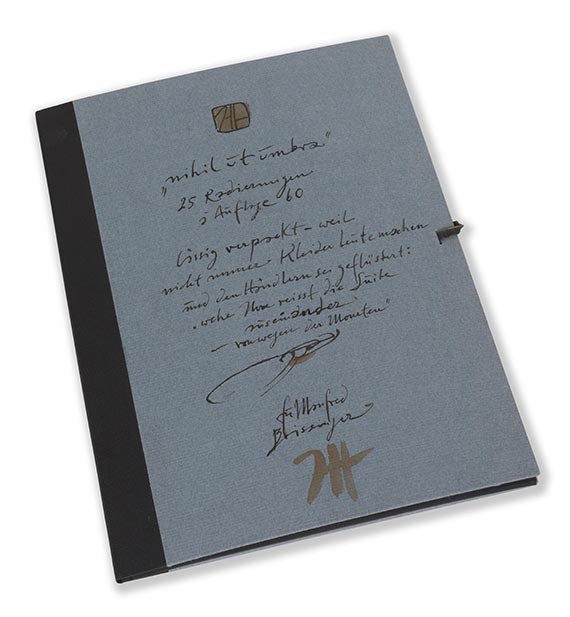 „nihil ut umbra"
25 Radierungen
à Auflage 60
lässig verpackt – weil
nicht immer Kleider Leute machen
und den Händlern sei geflüstert:
wehe Ihr reisst die Suite
auseinander
– von wegen der Moneten"
für Manfred